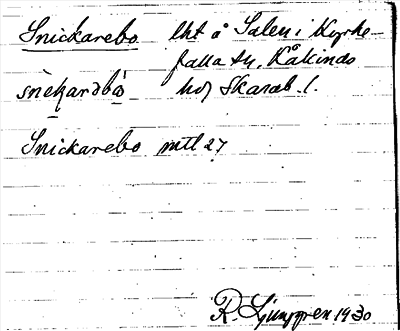 Snickarebo lht å Salen i Kyrke-
falla sn, Kåkinds
hd Skarab. l.
Snickarebo mtl 27
R. Ljunggren 1930